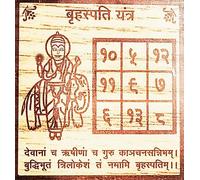 बृहस्पति यंत्र
१० ५ १२
११ ९ ७
६ १३ ८
देवानां च ऋषीणां च गुरु काञ्चनसन्निभम्।
बुद्धिभूतं त्रिलोकेशं तं नमामि बृहस्पतिम्।।